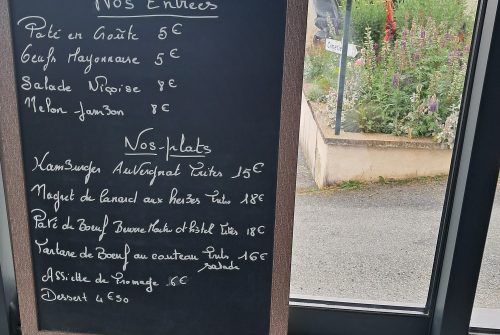 Nos Entrées
Paté en Croûte 5€
Oeufs Mayonnaise 5€
Salade Niçoise 8€
Melon-Jambon 8€
Nos-plats
Hamburger Auvergnat Frites 15€
Magret de Canard aux herbes Frites 18€
Pavé de Boeuf Beurre Maitre d'hôtel Frites 18€
Tartare de Boeuf au couteau Frites 16€
salade
Assiette de Fromage 6€
Dessert 4€50